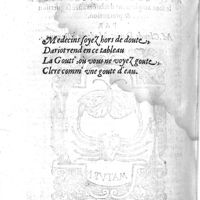 Medecins soyez hors de doute,
Dariot rend en ce tableau
La Goutt', ou vous ne voyez goute,
Clere comm' vne goute d'eau.